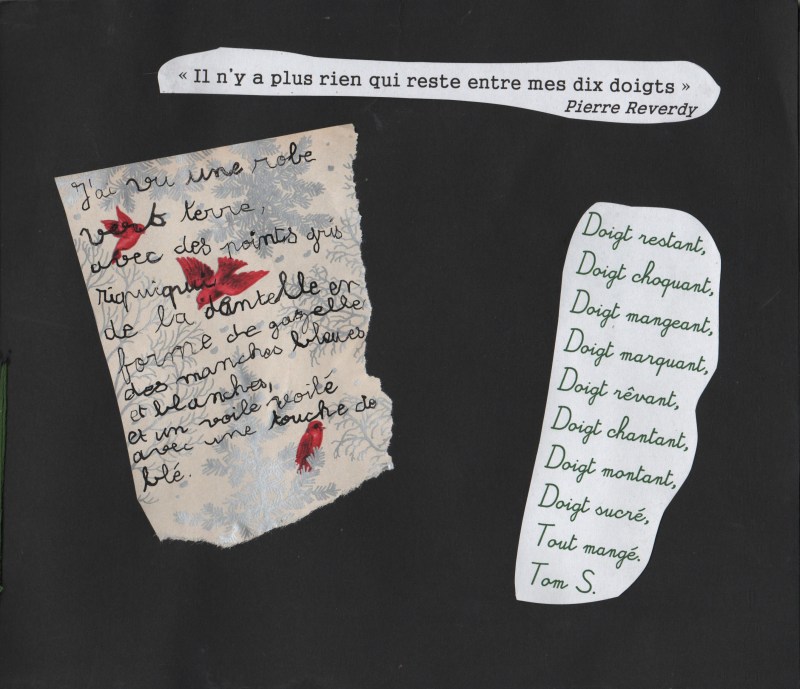 « Il n'y a plus rien qui reste entre mes dix doigts »
Pierre Reverdy
J'ai vu une robe
verts terre,
avec des points gris
riquiqui
de la dantelle en
forme de gazelle
des manches bleues
et blanches,
et un voile voilé
avec une touche de
blé.
Doigt restant,
Doigt choquant,
Doigt mangeant,
Doigt marquant,
Doigt rêvant,
Doigt chantant,
Doigt montant,
Doigt sucré,
Tout mangé.
Tom S.